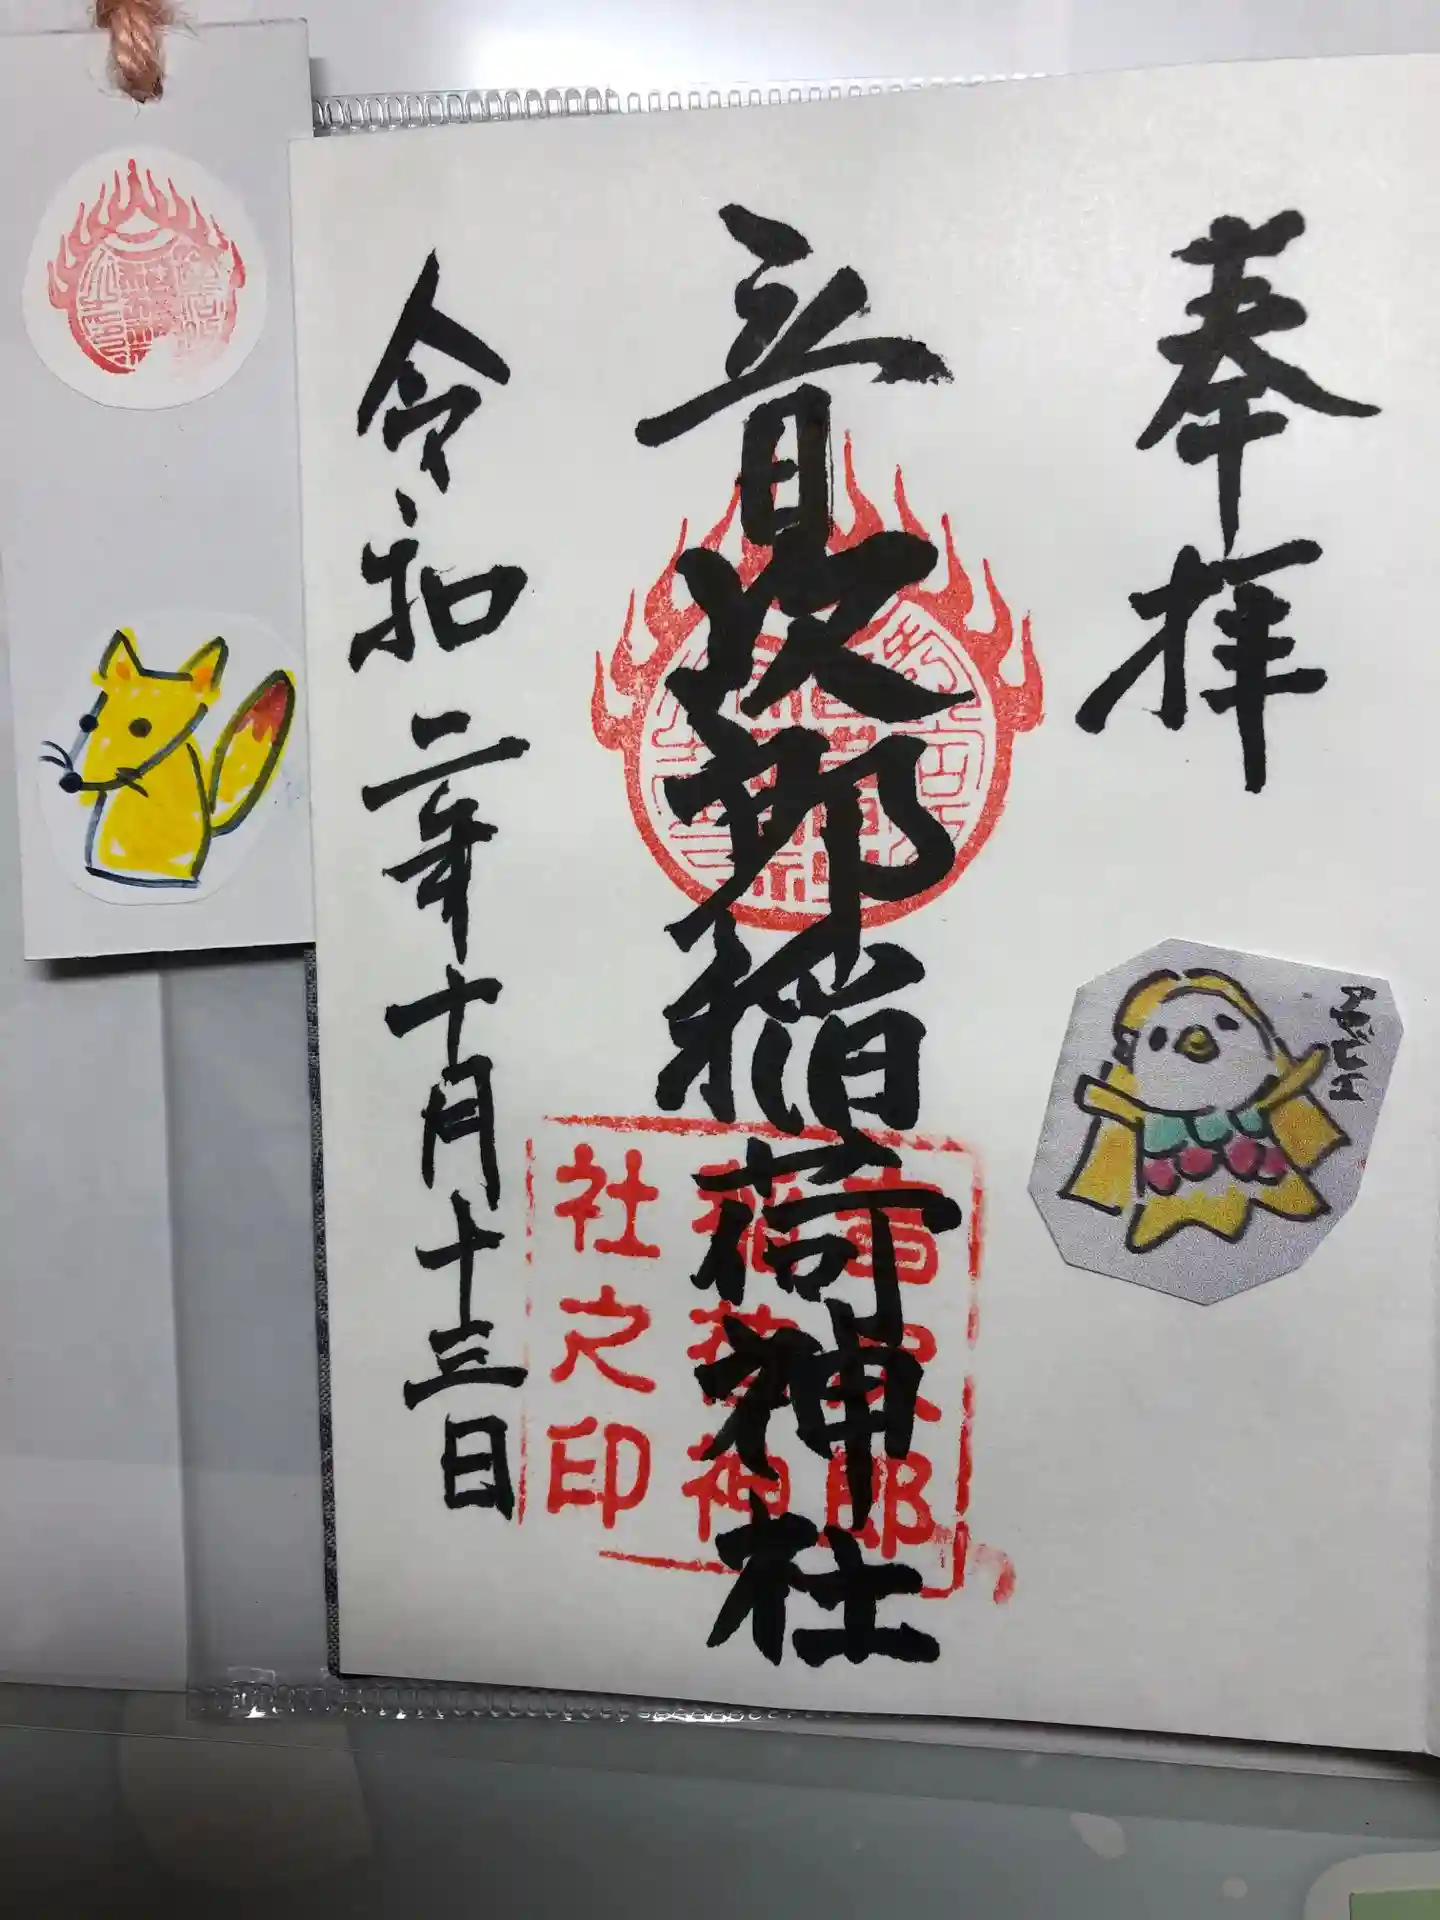 奉拝
音次郎稲荷神社
音次郎
稲荷神
社之印
令和二年十月十三日